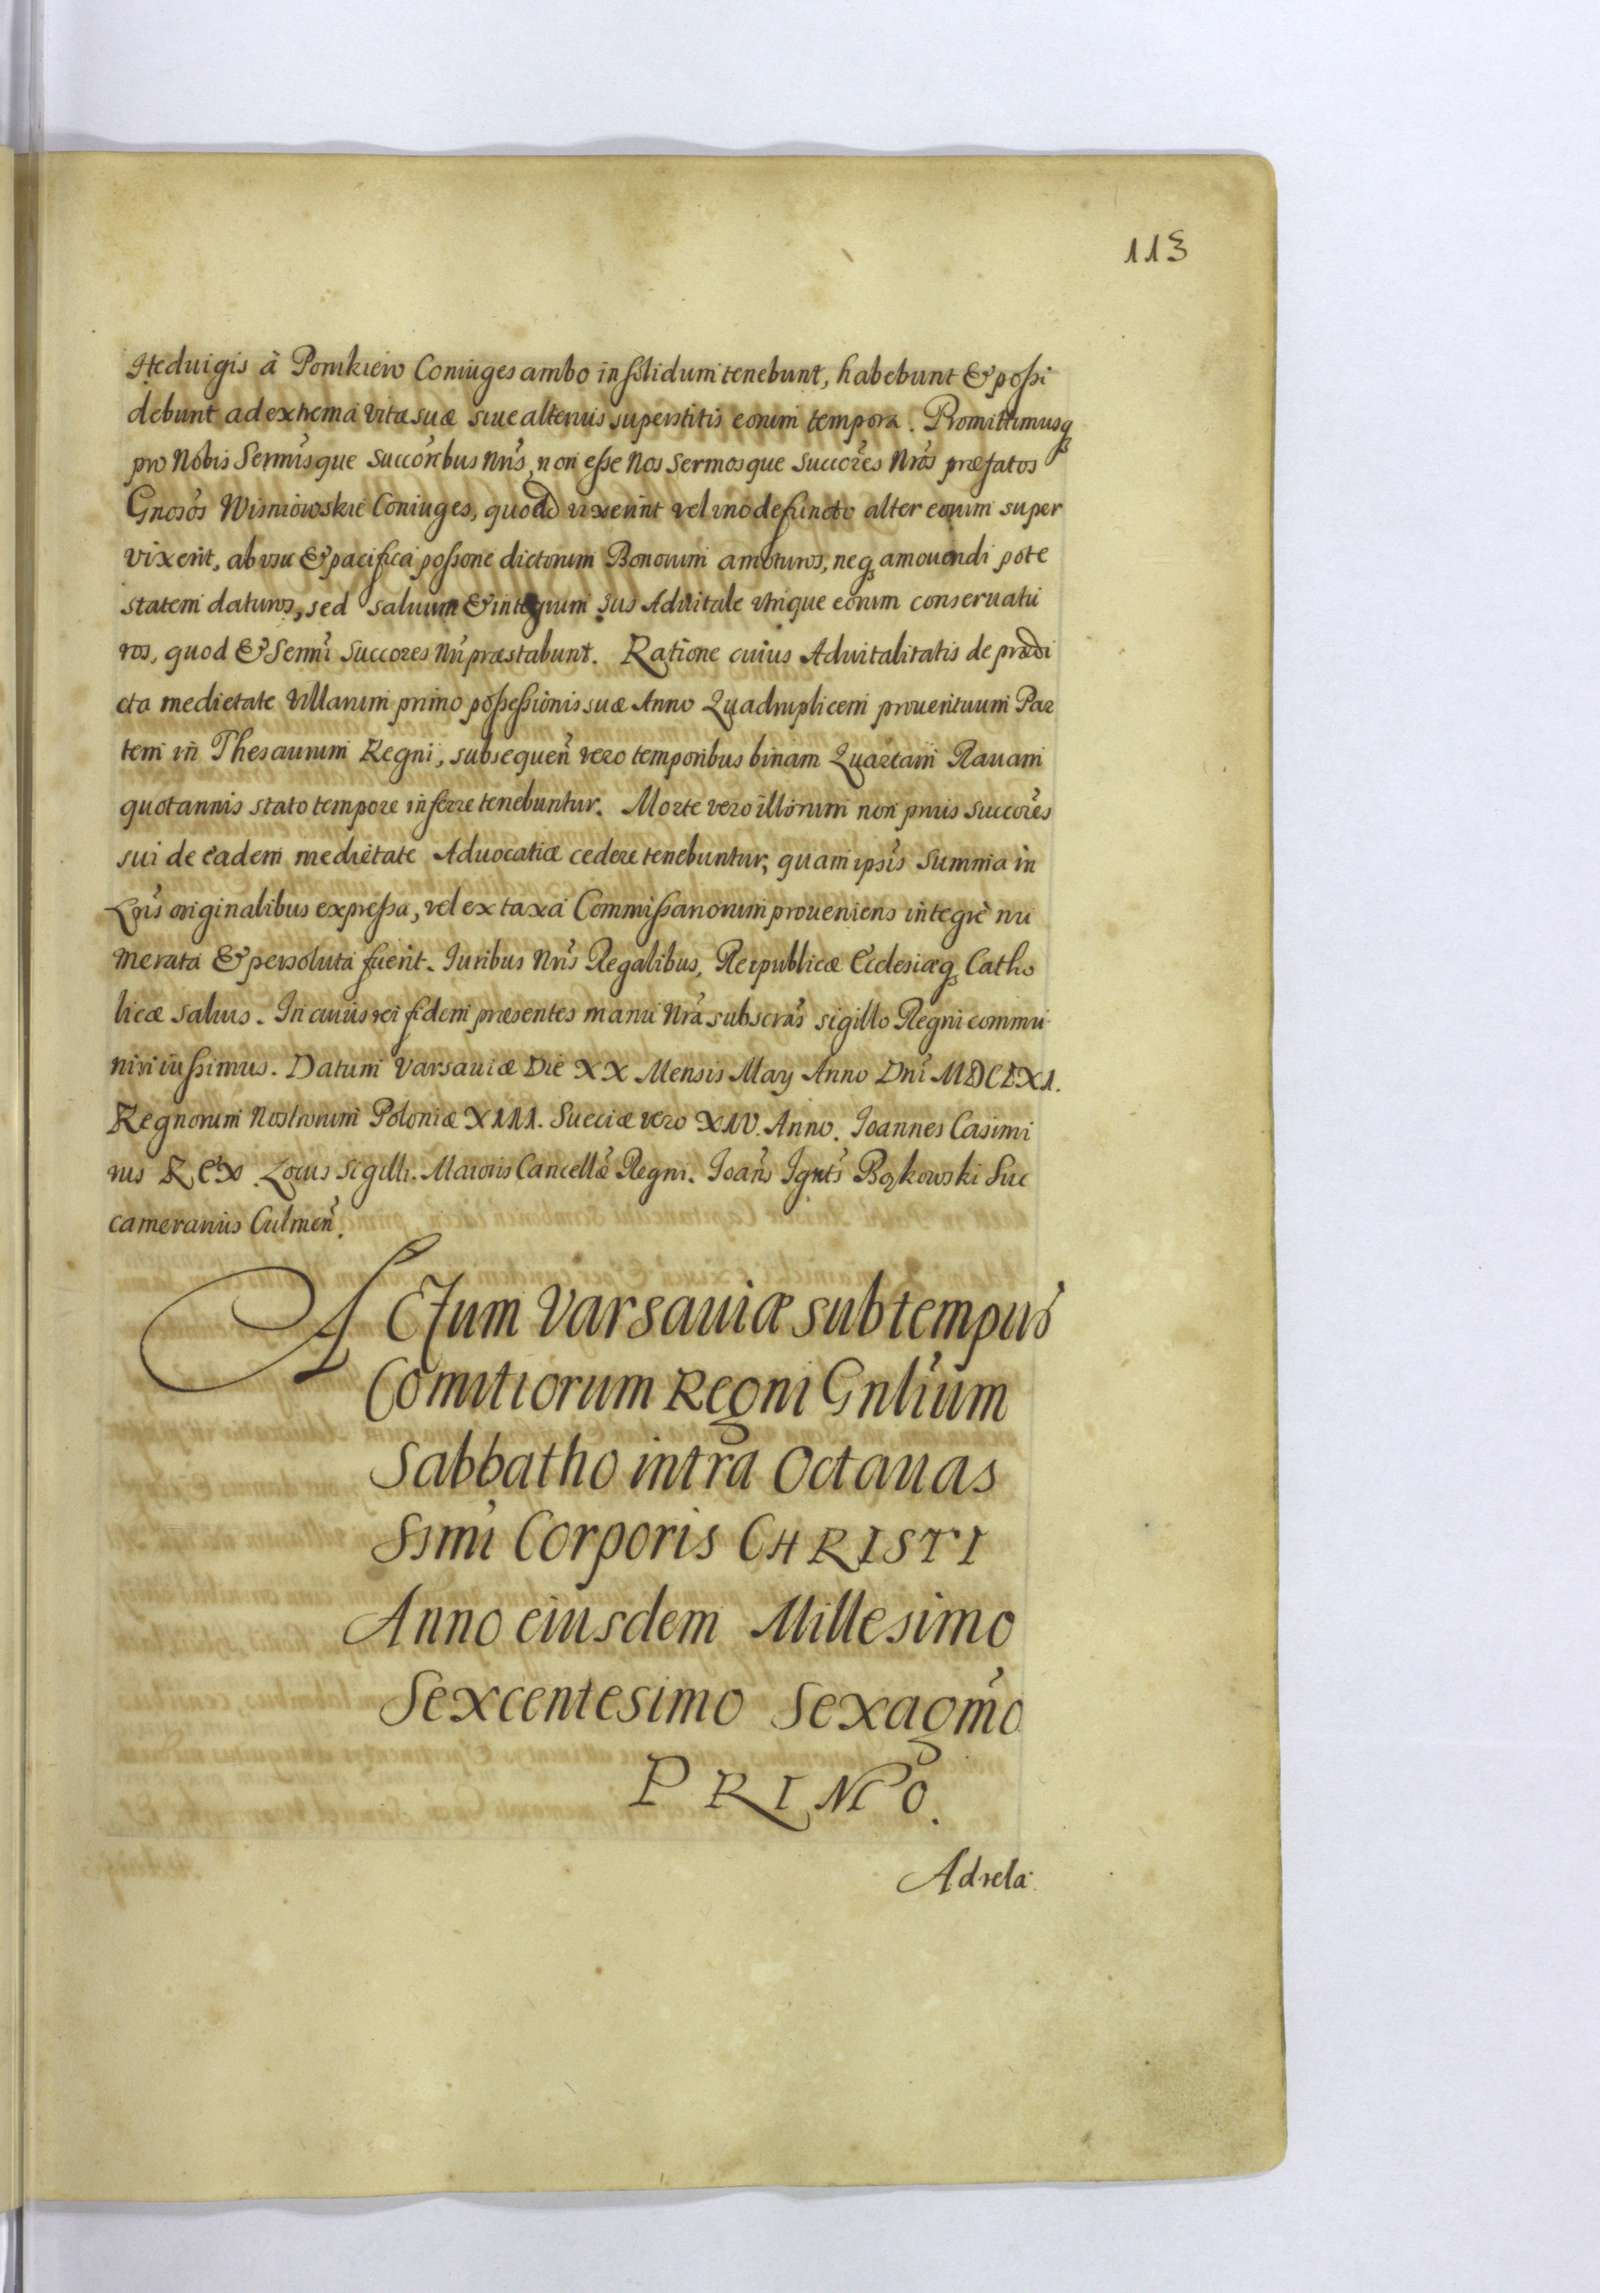 113
Heduigis à Ponikiew Coniuges ambo in solidum tenebunt, habebunt & possi
debunt ad extrema vitæ suæ siue alterius superstitis eorum tempora. Promittimusq
pro Nobis Sermisque Succoribus Nris, non esse Nos Sermosque Succores Nros præfatos
Gnosos Wisniowskie Coniuges, quoad vixerint vel uno defuncto alter eorum super
vixerit, ab vsu & pacifica possone dictorum Bonorum amoturos, neq amouendi pote
statem daturos, sed saluum & integrum Jus Aduitale vtrique eorum conseruatu
ros, quod & Sermi Succores Nri præstabunt. Ratione cuius Aduitalitatis de prædi
cta medietate Villarum primo possessionis suæ Anno Quadruplicem prouentuum Par
tem in Thesaurum Regni, subsequen vero temporibus binam Quartam Rauam
quotannis stato tempore inferre tenebuntur. Morte vero illorum non prius Succores
sui de eadem medietate Aduocatiæ cedere tenebuntur, quam ipsis Summa in
Lris originalibus expressa, vel ex taxa Commissariorum proueniens integrè nu
merata & persoluta fuerit. Iuribus Nris Regalibus, Reipublicæ Ecclesiæq Catho
licæ saluis. In cuius rei fidem præsentes manu Nra subscras sigillo Regni commu
niri iussimus. Datum Varsauiæ Die XX Mensis May Anno Dni MDCLXI.
Regnorum Nostrorum Poloniæ XIII. Sueciæ vero XIV. Anno. Ioannes Casimi
rus REX. Locus Sigilli. Maioris Cancellæ Regni. Ioans Ignts Bąkowski Suc
camerarius Culmen.
ACTum Varsauiæ sub tempus
Comitiorum Regni Gnlium
Sabbatho intra Octauas
Ssmi Corporis CHRISTI
Anno eiusdem Millesimo
Sexcentesimo Sexagmo
PRIMO.
Ad rela